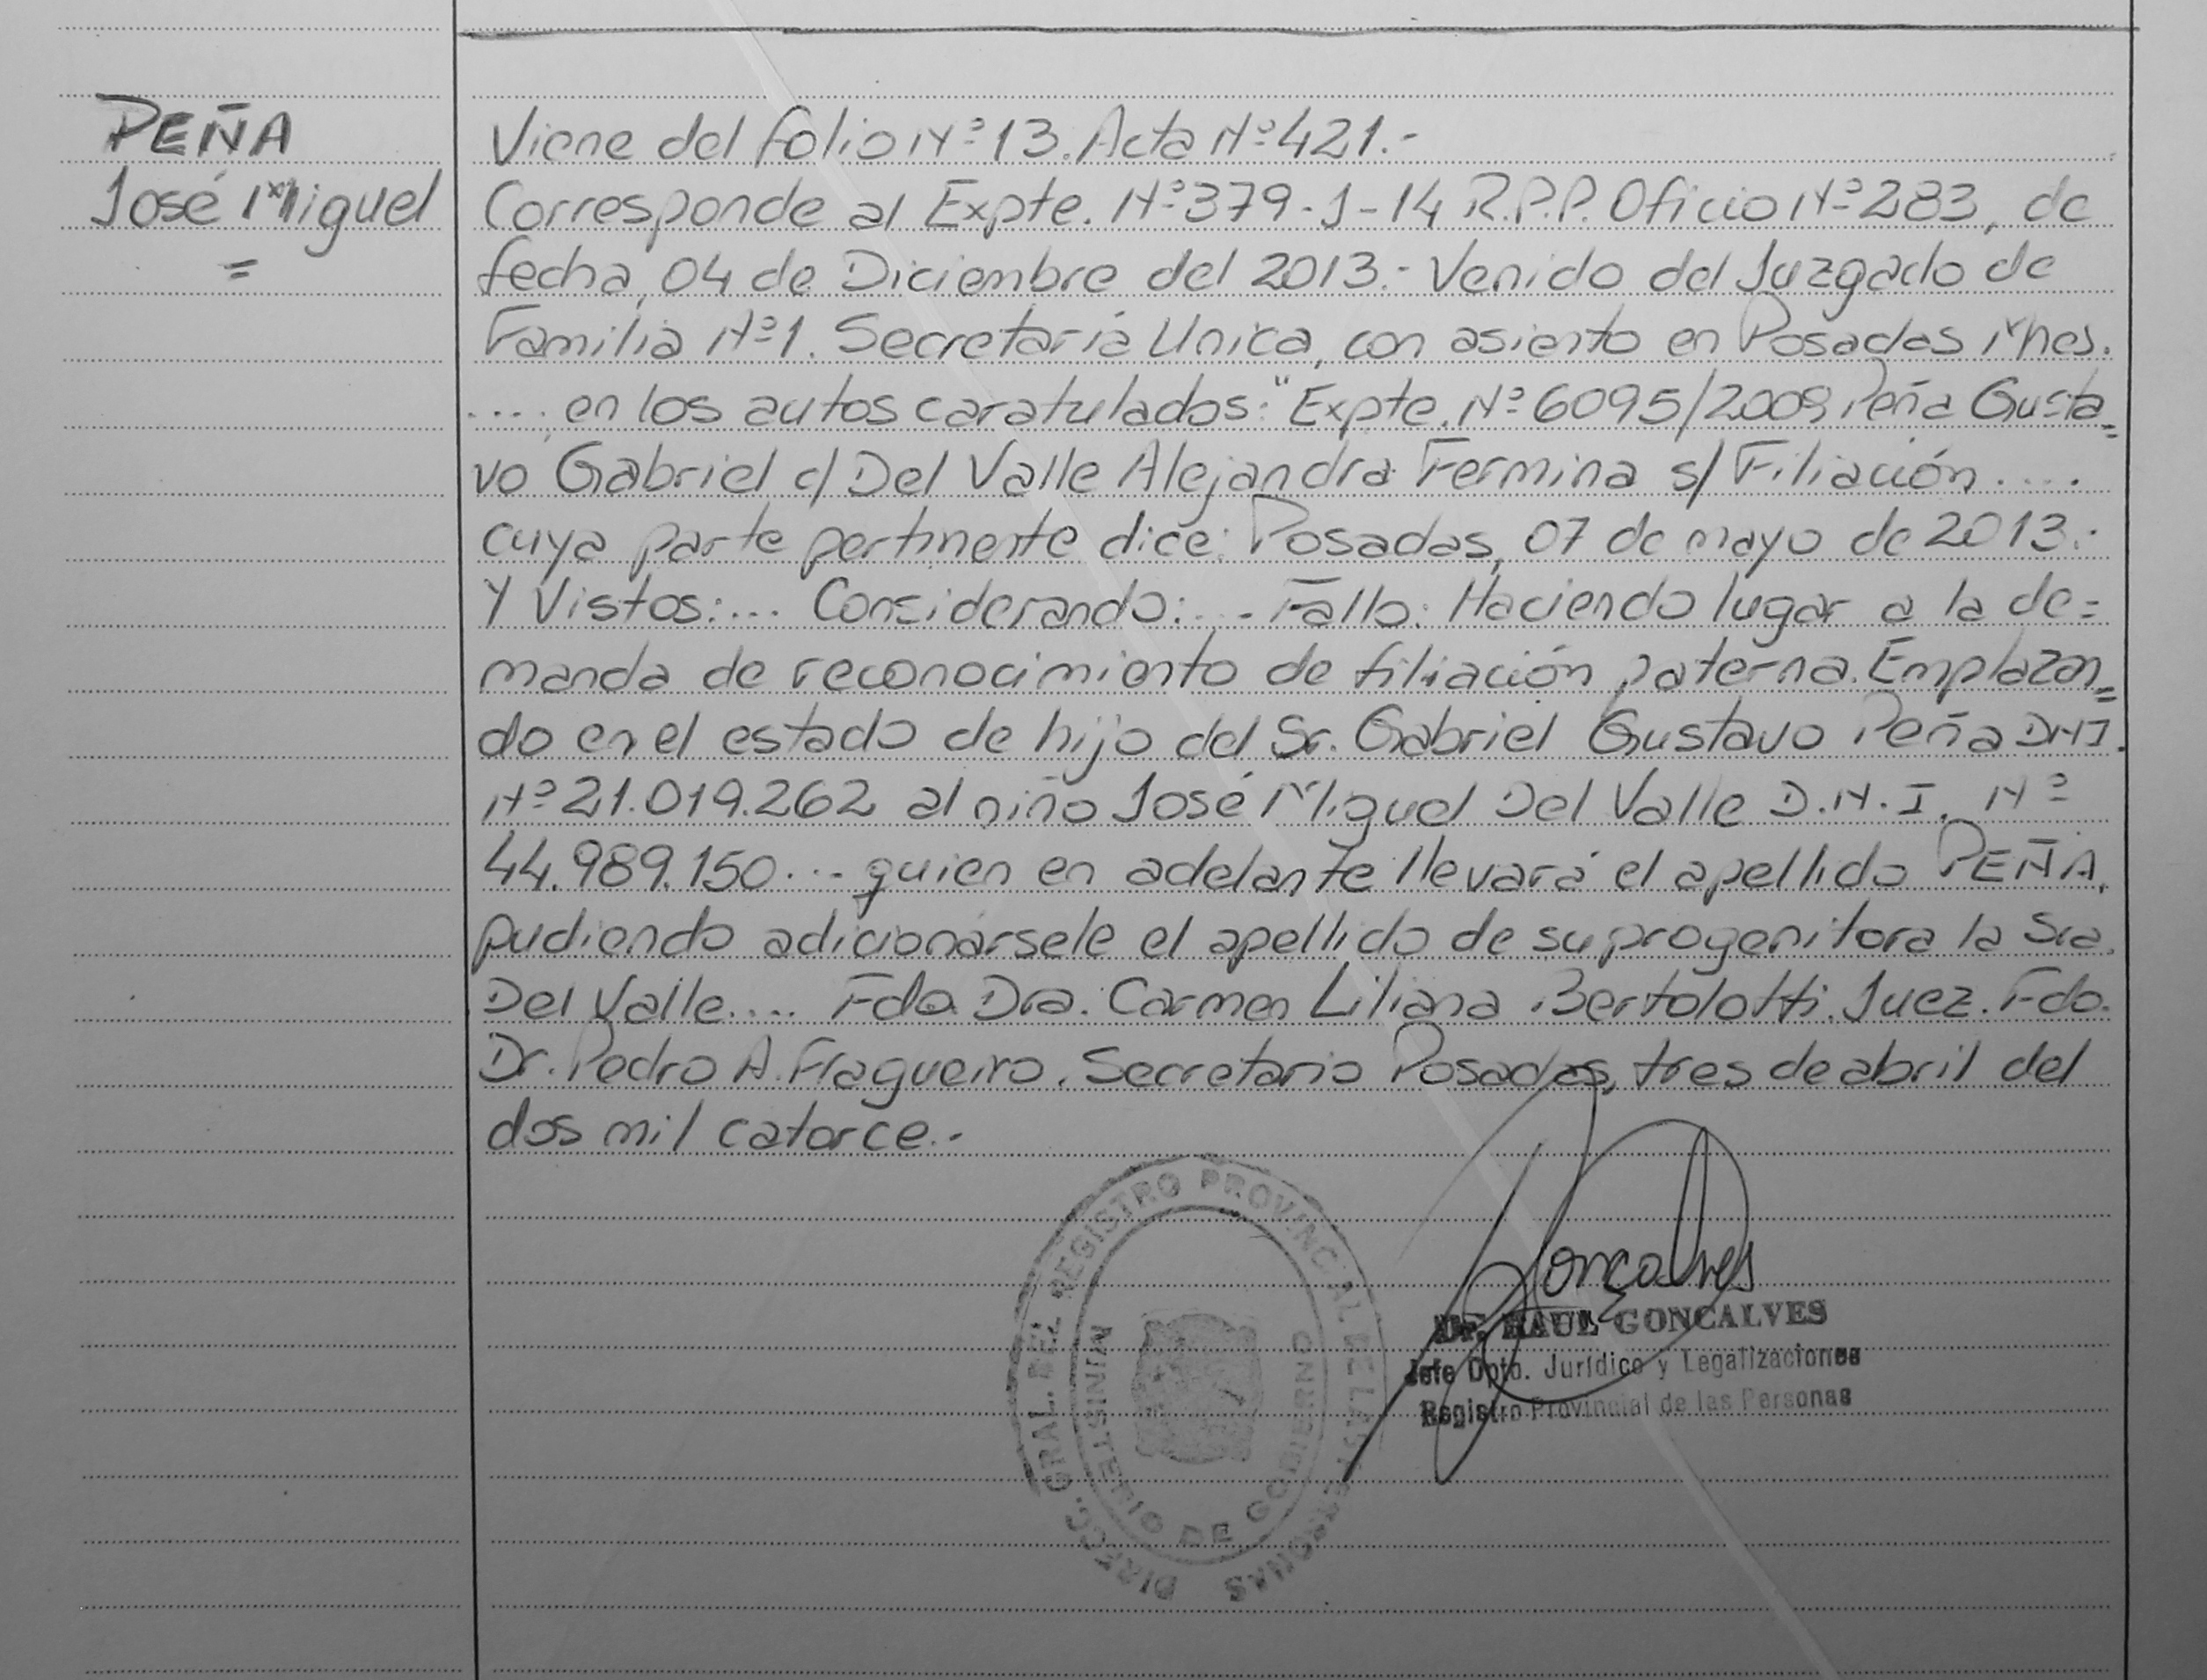 PEÑA
José Miguel
=
Viene del folio Nº 13. Acta Nº 421.-
Corresponde al Expte. Nº 379-J-14 R.P.P. Oficio Nº 283, de
fecha, 04 de Diciembre del 2013.- Venido del Juzgado de
Familia Nº 1. Secretaría Unica, con asiento en Posadas Mnes.
...., en los autos caratulados: "Expte. Nº 6095/2009 Peña Gusta=
vo Gabriel c/ Del Valle Alejandra Fermina s/ Filiación ....
cuya parte pertinente dice: Posadas, 07 de mayo de 2013.-
Y Vistos:... Considerando:... Fallo: Haciendo lugar a la de=
manda de reconocimiento de filiación paterna. Emplazan=
do en el estado de hijo del Sr. Gabriel Gustavo Peña DNI.
Nº 21.019.262 al niño José Miguel Del Valle D.N.I. Nº
44.989.150... quien en adelante llevará el apellido PEÑA,
pudiendo adicionársele el apellido de su progenitora la Sra.
Del Valle.... Fdo. Dra. Carmen Liliana Bertolotti. Juez. Fdo.
Dr. Pedro A. Fragueiro. Secretario Posadas, tres de abril del
dos mil catorce.-
DIRECC. GRAL. DEL REGISTRO PROVINCIAL DE LAS PERSONAS
MINISTERIO DE GOBIERNO
Gonçalves
Dr. RAUL GONCALVES
Jefe Dpto. Jurídico y Legalizaciones
Registro Provincial de las Personas